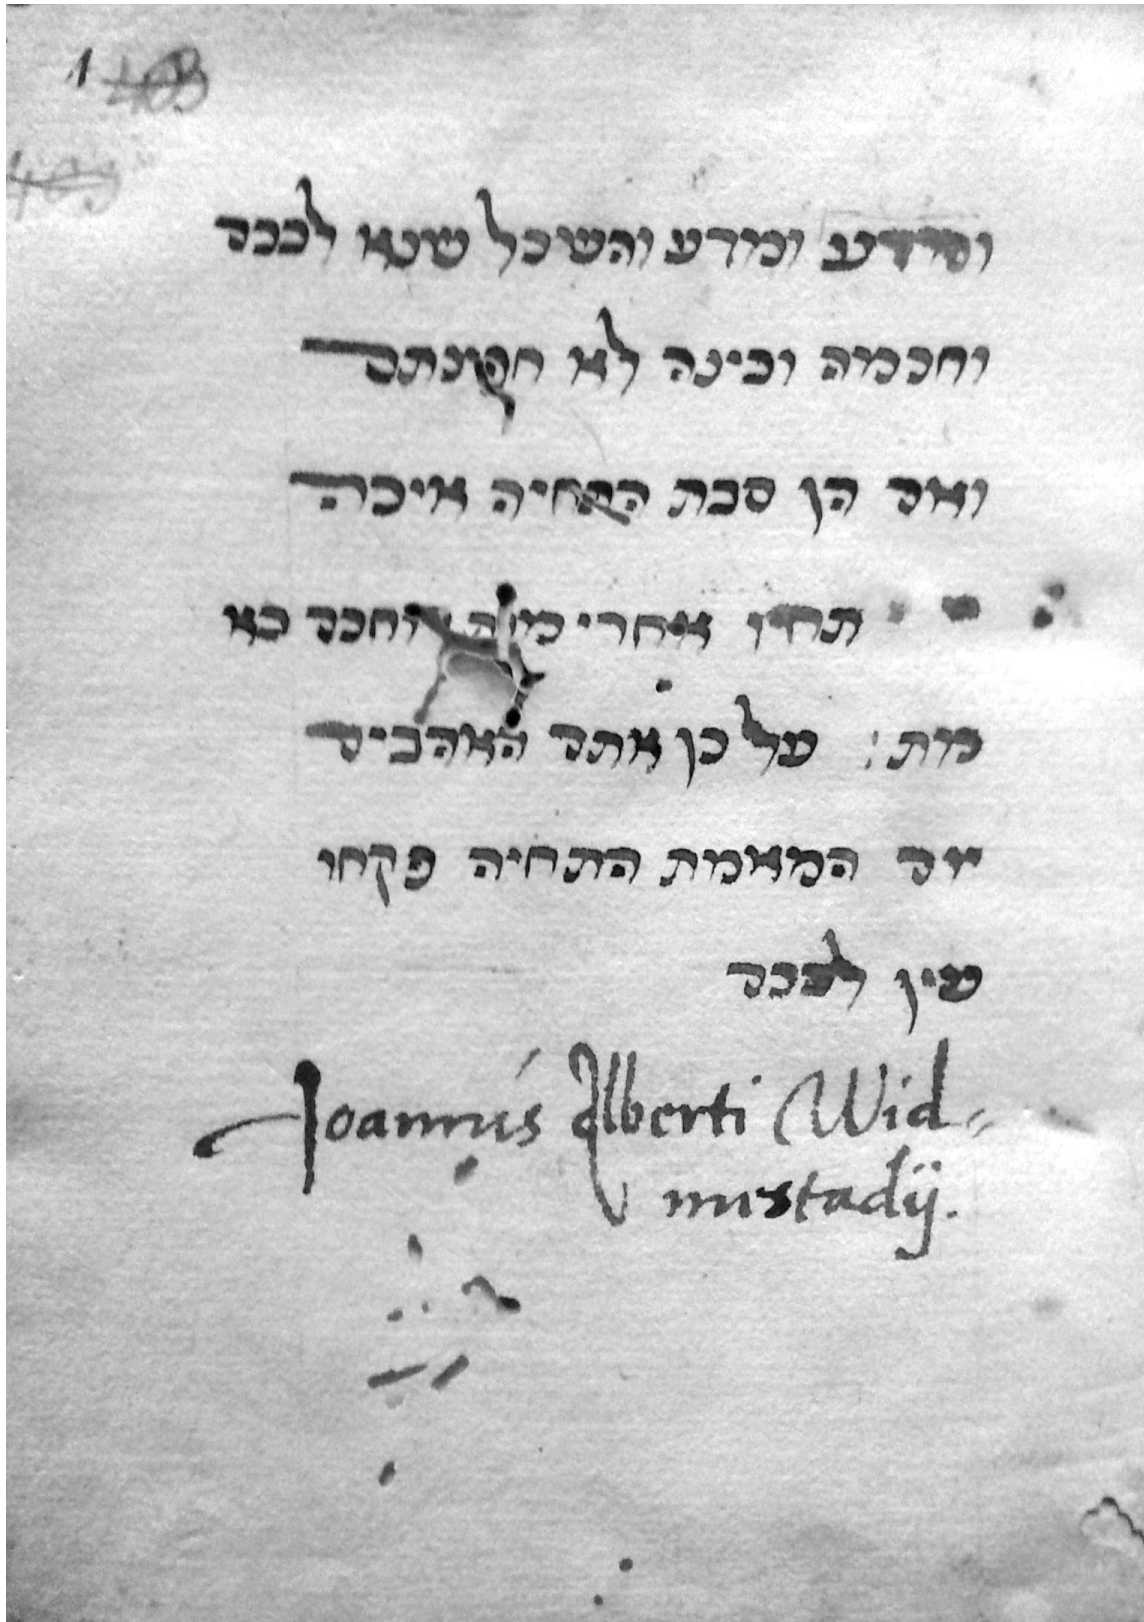 1 403
403
ומידע ומדע והשכל שנא לבבם
וחכמה ובינה לא חפצתם
ואם הן סבת התחיה איכה
תחיו אחרי מות החכם בא
מת: על כן אתם האהבים
ים המאמת התחיה פקחו
עין לבבם
Joannis Alberti Wid=
mestadij.